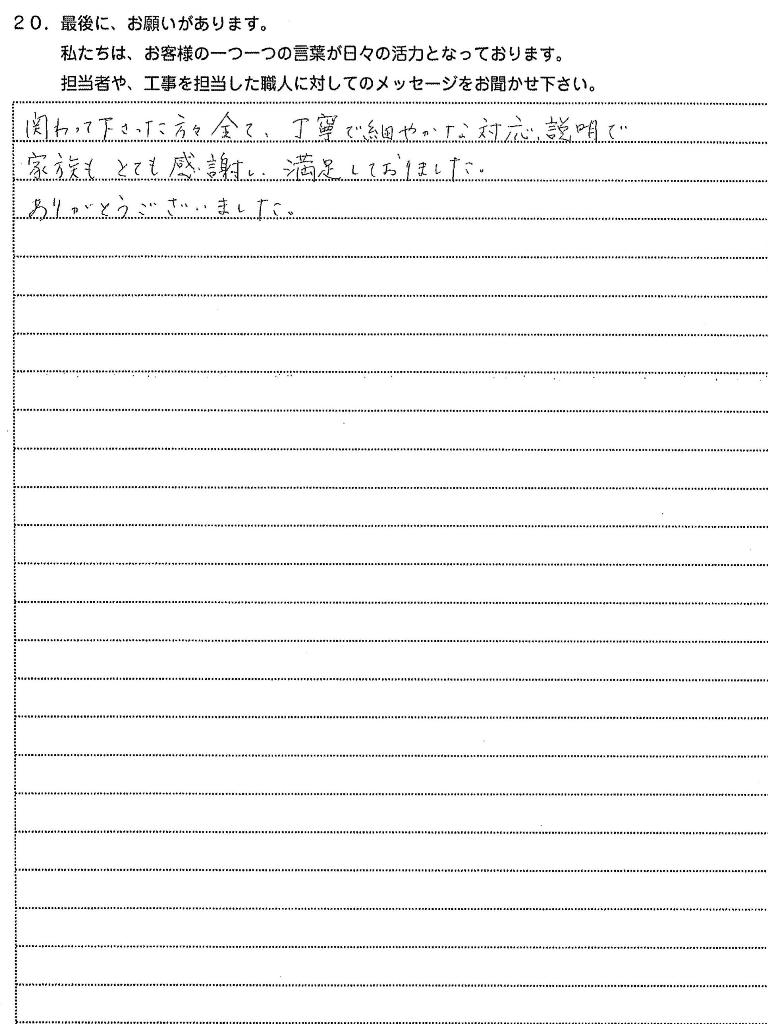 20．最後に、お願いがあります。
私たちは、お客様の一つ一つの言葉が日々の活力となっております。
担当者や、工事を担当した職人に対してのメッセージをお聞かせ下さい。
関わって下さった方々全て、丁寧で細やかな対応、説明で
家族も とても感謝し、満足しておりました。
ありがとうございました。